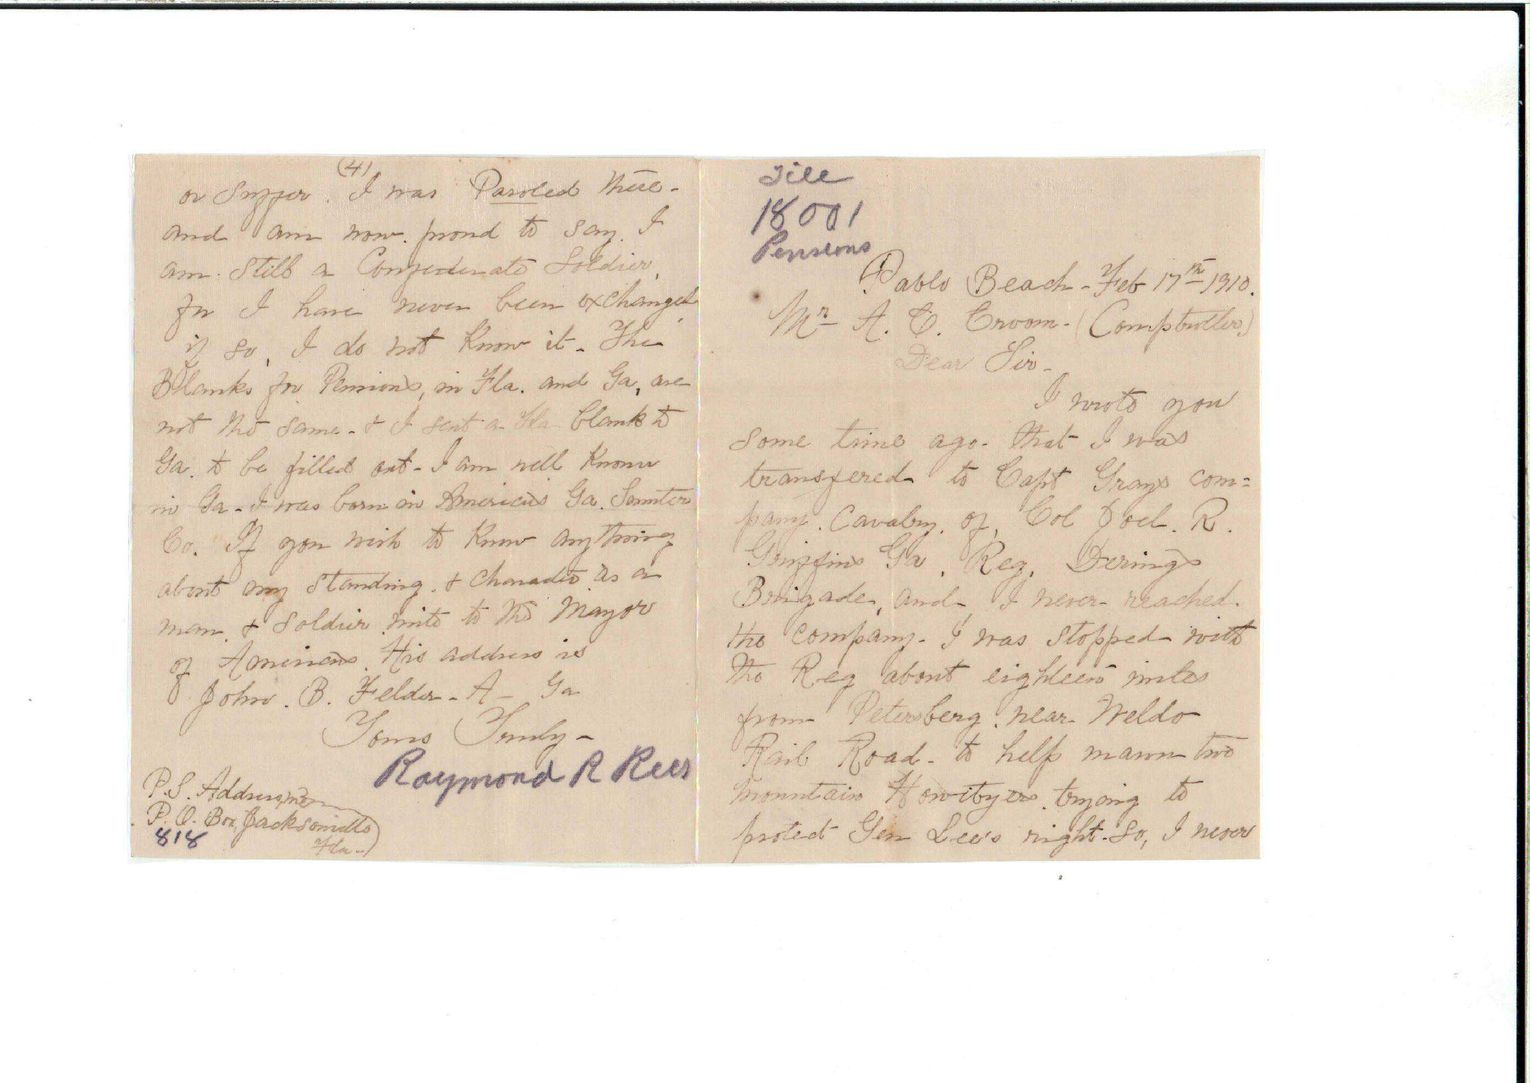 File
18001
Pensions
Pablo Beach - Feb 17th 1910.
Mr A. C. Croom - (Comptroller)
Dear Sir -
I wrote you
some time ago - that I was
transfered to Capt Grays com=
pany. Cavalry. of, Col Joel. R.
Griffins Ga. Reg. Derings
Brigade, and I never reached.
the company - I was stopped with
the Reg about eighteen miles
from Petersberg. near Weldo
Rail Road - to help mann two
mountain trying to
protect Gen Lee's right - So, I never
(4)
or supper. I was Paroled there -
and am now. proud to say. I
am. still a Confederate Soldier,
for I have never been exchanged
if so, I do not know it - The
Blanks for Pensions, in Fla. and Ga, are
not the same - & I sent a Fla blank to
Ga. to be filled out - I am well known
in Ga - I was born in Americus Ga. Sumter
Co. If you wish to know anything
about my standing. & character as a
man. & soldier. write to the Mayor
of Americus. His address is
John. B. Felder - A - Ga
Yours Truly -
Raymond R Rees
P.S. Address me
P.O. Box, Jacksonville
818 Fla -)